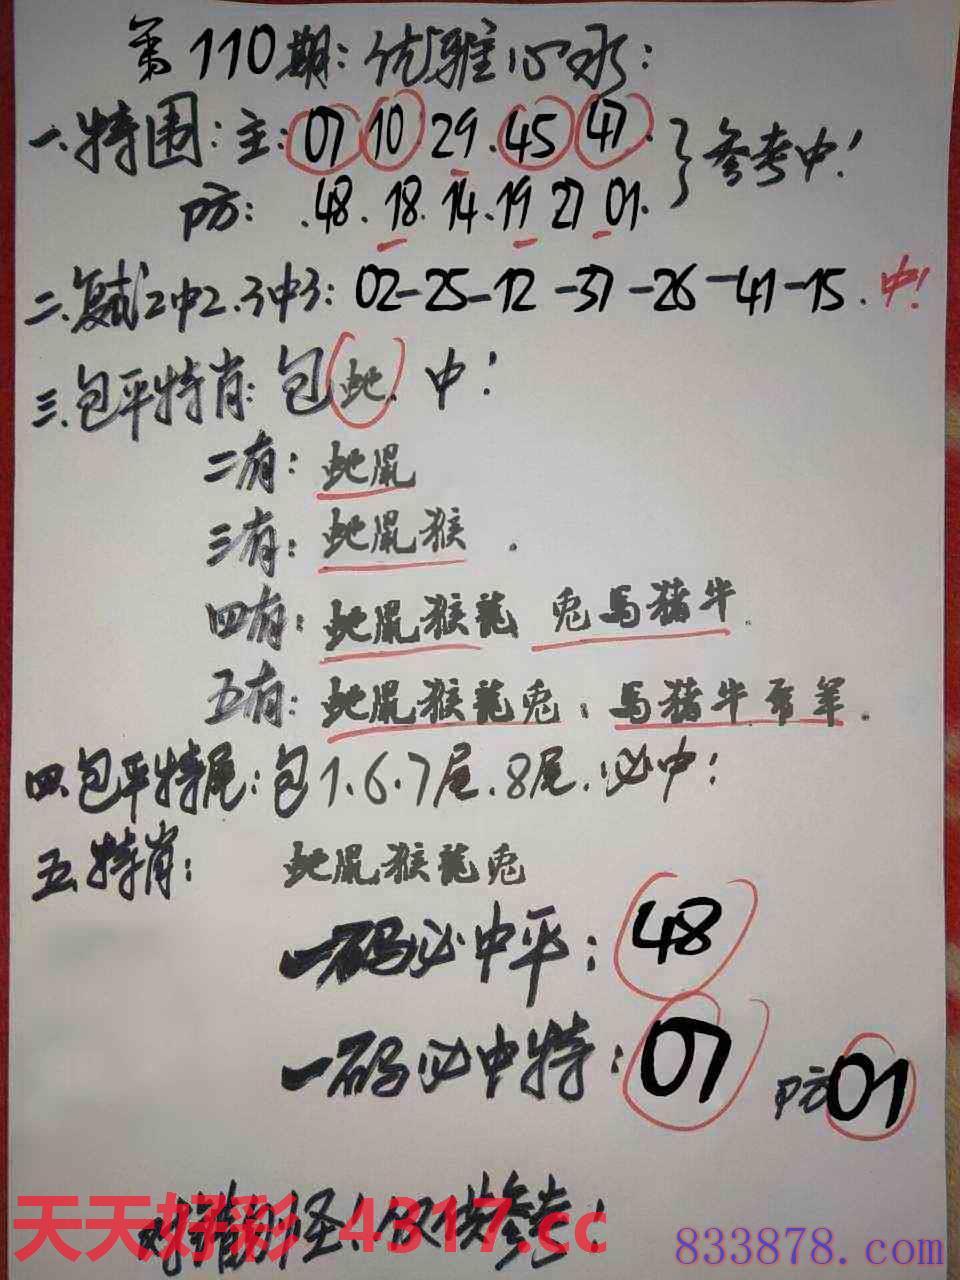 第110期:优雅心水:
一.特围:主:07 10 29.45 47. }参考中!
防: .48.18.14.19 27 01.
二.复试2中2.3中3:02-25-12-37-26-41-15.中!
三.包平特肖:包蛇.中!
二有:蛇鼠
三有:蛇鼠猴.
四有:蛇鼠猴龍 兔马猪牛.
五有:蛇鼠猴龍兔:马猪牛 羊.
四.包平特尾:包1.6.7尾.8尾.必中!
五.特肖: 蛇鼠猴龍兔
一码必中平:48
一码必中特:07 防01
对错勿怪!仅供参考!
天天好彩 4317.cc
833878.com